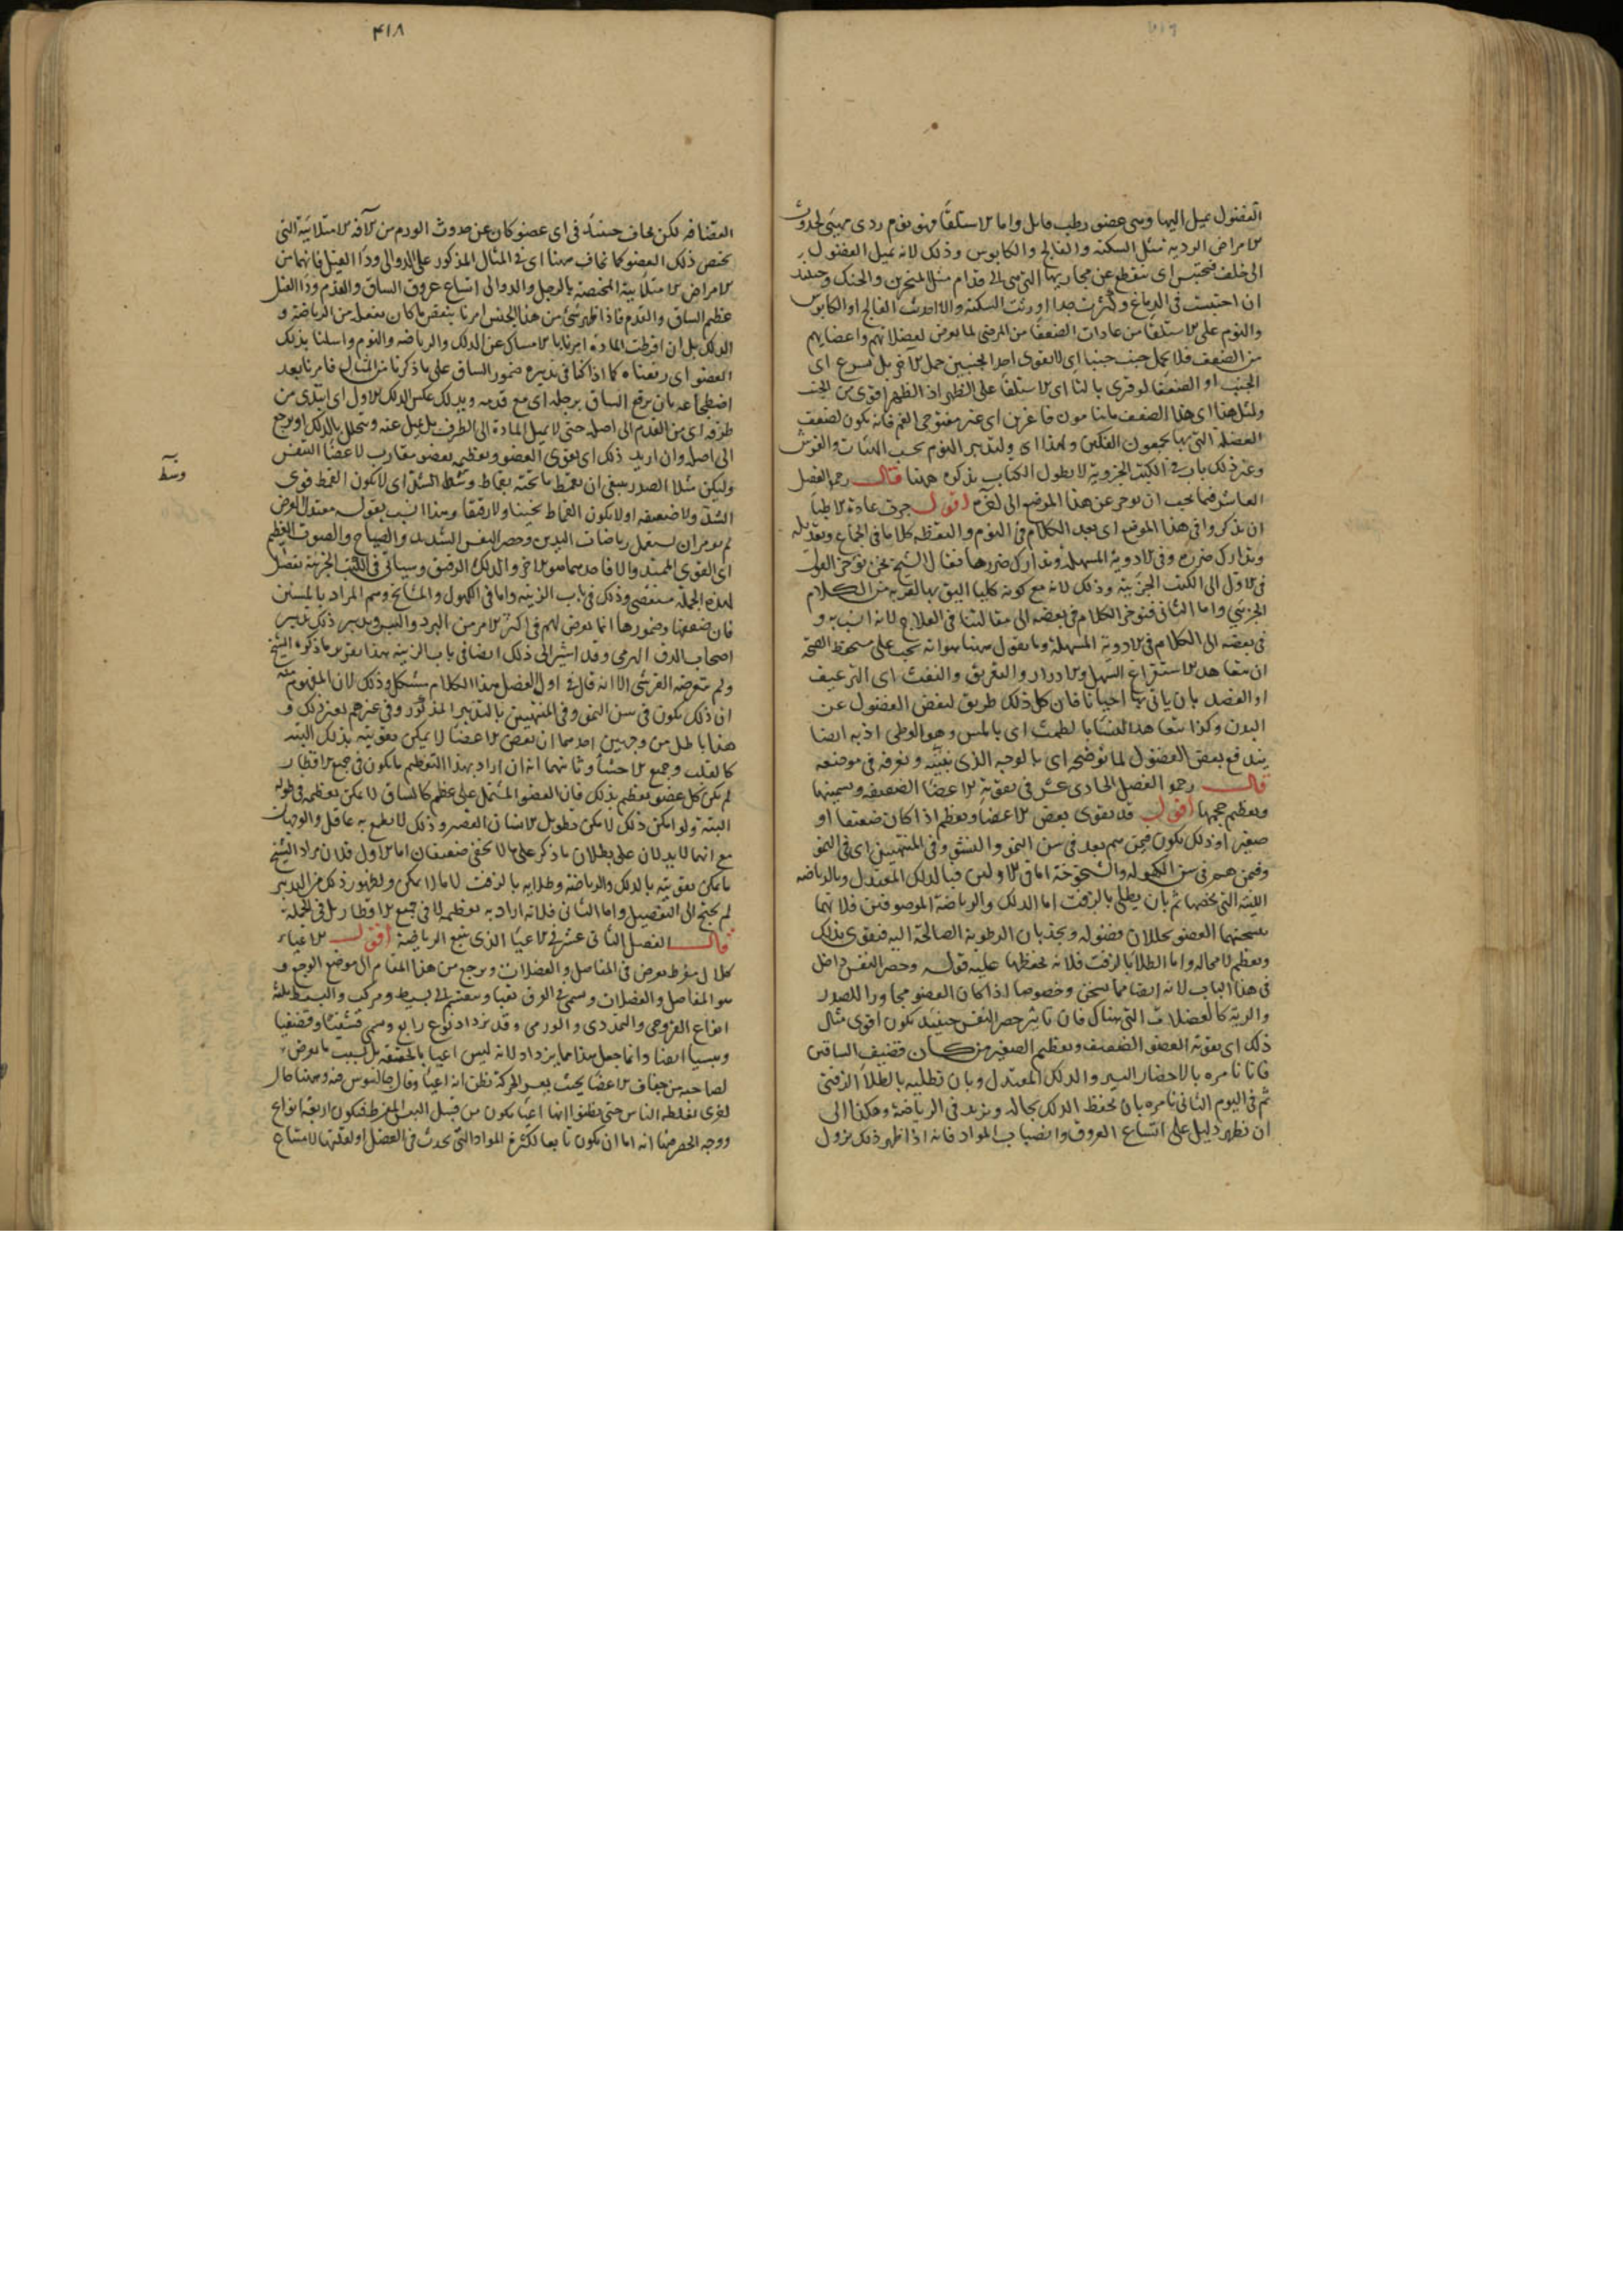 الفضول يميل اليها وهى عضو رطب قابل واما الاستلقا فهو نوم ردى مهيئ لحدوث
الامراض الرديه مثل السكته والفالج والكابوس وذلك لانه يميل الفضول
الى خلف فتحتبس اى ينقطع عن مجاريها التى هى الى قدام مثل المنخرين والحنك وحينئذ
ان احتبست فى الدماغ وكثرت جدا اورثت السكته والا اورثت الفالج او الكابوس
والنوم على الاستلقا من عادات الضعفا من المرضى لما يعرض لعضلاتهم واعضايهم
من الضعف فلا يحمل جنب جنبا اى لا يقوى احد الجنبين حمل الاخر بل يسرع اى
الجنب او الضعفا لو قرى بالتا اى الاستلقا على الظهر اذ الظهر اقوى من الجنب
ولمثل هذا اى هذا الضعف ما ينامون فاغرين اى غير مفتوحى الفم فانه يكون لضعف
العضلة التى بها يجمعون الفكين ولهذا اى ولتدبير النوم بحسب الهيئات والفرش
وغير ذلك باب فى الكتب الجزوية لا يطول الكتاب بذكره ههنا قال رحمه الفصل
العاشر فيما يجب ان يوخر عن هذا الموضع الى غيره اقول جرت عادة الاطبا
ان يذكروا فى هذا الموضع اى بعد الكلام فى النوم واليقظه كلاما فى الجماع وتعديله
وتدارك ضرره وفى الادوية المسهلة وتدارك ضررها فقال الشيخ نحن نوخر القول
فى الاول الى الكتب الجزئية وذلك لانه مع كونه كليا اليق بها القربه من الكلام
الجزئى واما الثانى فنوخر الكلام فى بعضه الى مقالتنا فى العلاج لانه انسب به و
فى بعضه الى الكلام فى الادوية المسهلة وما يقول ههنا هو انه يجب على مستحفظ الصحه
ان يتعاهد الاستفراغ السهل والادرار والتعريق والنفث اى الترعيف
او الفصد بان ياتى بها احيانا فان كل ذلك طريق لنفض الفضول عن
البدن وكذا يتعاهد النسا بالطمث اى بالمس وهو الوطى اذ به ايضا
يندفع بعض الفضول لما نوضحه اى بالوجه الذى نبينه ونعرفه فى موضعه
قال رحمه الفصل الحادى عشر فى تقوية الاعضا الضعيفه وتسمينها
وتعظيم حجمها اقول قد يقوى بعض الاعضا ويعظم اذا كان ضعيفا او
صغيرا وذلك يكون فيمن هم بعد فى سن النمو والنشو وفى المنتهيين اى فى النمو
وفيمن هم فى سن الكهوله والشيخوخة اما فى الاولين فبالدلك المعتدل وبالرياضه
اللينة التى يخصها ثم بان يطلى بالزفت اما الدلك والرياضة الموصوفين فلانهما
يسخنهما العضو يحللان فضوله ويجذبان الرطوبة الصالحة اليه فيقوى بذلك
ويعظم لا محاله واما الطلا بالزفت فلانه يحفظها عليه قوله وحصر النفس داخل
فى هذا الباب لانه ايضا مما يسخن وخصوصا اذا كان العضو مجاورا للصدر
والرية كالعضلات التى هناك فان تاثير حصر النفس حينئذ يكون اقوى مثال
ذلك اى تقوية العضو الضعيف وتعظيم الصغير من كان قضيف الساقين
فانا نامره بالاحضار اليسير والدلك المعتدل وبان تطليه بالطلا الزفتى
ثم فى اليوم الثانى نامره بان يحفظ الدلك بحاله ويزيد فى الرياضة وهكذا الى
ان تظهر دليل على اتساع العروق وانصباب المواد فانه اذا ظهر ذلك يزول
۴۱۸
القضافه لكن يخاف حينئذ فى اى عضو كان عن حدوث الورم من الآفه الامتلائية التى
تختص ذلك العضو كما يخاف ههنا اى فى المثال المذكور على الدوالى ودا الفيل فانهما من
الامراض الامتلائية المختصة بالرجل والدوالى اتساع عروق الساق والقدم ودا الفيل
عظم الساق والقدم فاذا ظهر شئ من هذا الجنس امرنا بنقص ما كان يفعل من الرياضة و
الدلك بل ان افرطت المادة امرنا بالامساك عن الدلك والرياضه والنوم واسلنا بذلك
العضو اى رفعناه كما اذا كنا فى تدبيره ضمور الساق على ما ذكرنا من المثال فامرنا بعد
اضطجاعه بان يرفع الساق برجله اى مع قدمه ويدلك عكس الدلك الاول اى ابتدى من
طرفه اى من القدم الى اصله حتى لا يميل المادة الى الطرف بل يميل عنه ويتحلل بالدلك او يرجع
الى اصله وان اريد ذلك اى تقوى العضو وتعظيمه بعضو مقارب لاعضا التنفس
وليكن مثلا الصدر ينبغى ان يقمط ما تحته بقماط وسط الشد اى لا يكون القمط قوى
الشد ولا ضعيفه او لا يكون القماط ثخينا ولا رقيقا وهذا انسب بقوله معتدل العرض
ثم يومر ان يستعمل رياضات اليدين وحصر النفس الشديد والصياح والصوت العظيم
اى القوى الممتد والا فاحدهما هو الاخر والدلك الرقيق وسياتى فى الكتب الجزئية تفصيل
لهذه الجملة مستقصى وذلك فى باب الزينه واما فى الكهول والمشايخ وهم المراد بالمسنين
فان ضعفها وضمورها انما يعرض لهم فى اكثر الامر من البرد واليبس وتدبير ذلك تدبير
اصحاب الدق الهرمى وقد اشير الى ذلك ايضا فى باب الزينه هذا تقرير ما ذكره الشيخ
ولم يتعرضه القرشى الا انه قال فى اول الفصل هذا الكلام مشكل وذلك لان المفهوم منه
ان ذلك يكون فى سن النمو وفى المنتهيين بالتدبير المذكور وفى غيرهم بغير ذلك و
هذا باطل من وجهين احدهما ان بعض الاعضا لا يمكن تقويته بذلك البته
كالقلب وجميع الاحشا وثانيهما انه ان اراد بهذا التعظيم ما يكون فى جميع الاقطار
لم يكن كل عضو يعظم بذلك فان العضو المشتمل على عظم كالساق لا يمكن تعظيمه فى طوله
البتة ولو امكن ذلك لامكن تطويل الانسان القصير وذلك لا يطمع به عاقل والوجهان
مع انهما لا يدلان على بطلان ما ذكر على ما لا يخفى ضعيفان اما الاول فلان مراد الشيخ
ما يمكن تقويته بالدلك والرياضة وطلايه بالزفت لا ما لا يمكن ولظهور ذلك من التدبير
لم يحتج الى التفصيل واما الثانى فلانه اراد به تعظيمه لا فى جميع الاقطار بل فى الجملة
قال الفصل الثانى عشر فى الاعيا الذى يتبع الرياضة اقول الاعياء
كلال مفرط يعرض فى المفاصل والعضلات ويرجع من هذا المقام الى موضع الوجع و
هو المفاصل والعضلات وسمى فى العرق تعبا وينقسم الى بسيط ومركب والبسيط ثلثة
انواع القروحى والتمددى والورمى وقد يزداد نوع رابع ويسمى قشفيا وقضفيا
ويبسيا ايضا وانما جعل هذا مما يزداد لانه ليس اعيا بالحقيقه بل بسبب ما يعرض
لصاحبه من جفاف الاعضا بحيث يعسر الحركة يظن انه اعيا وقال جالينوس فيه وههنا حال
اخرى يغلطه الناس حتى يظنوا انها اعيا يكون من قبل اليبس المفرط فيكون اربعة انواع
ووجه الحصر هنا انه اما ان يكون تابعا لكثرة المواد التى تحدث فى الفضل او لقلتها لامتناع
وسط